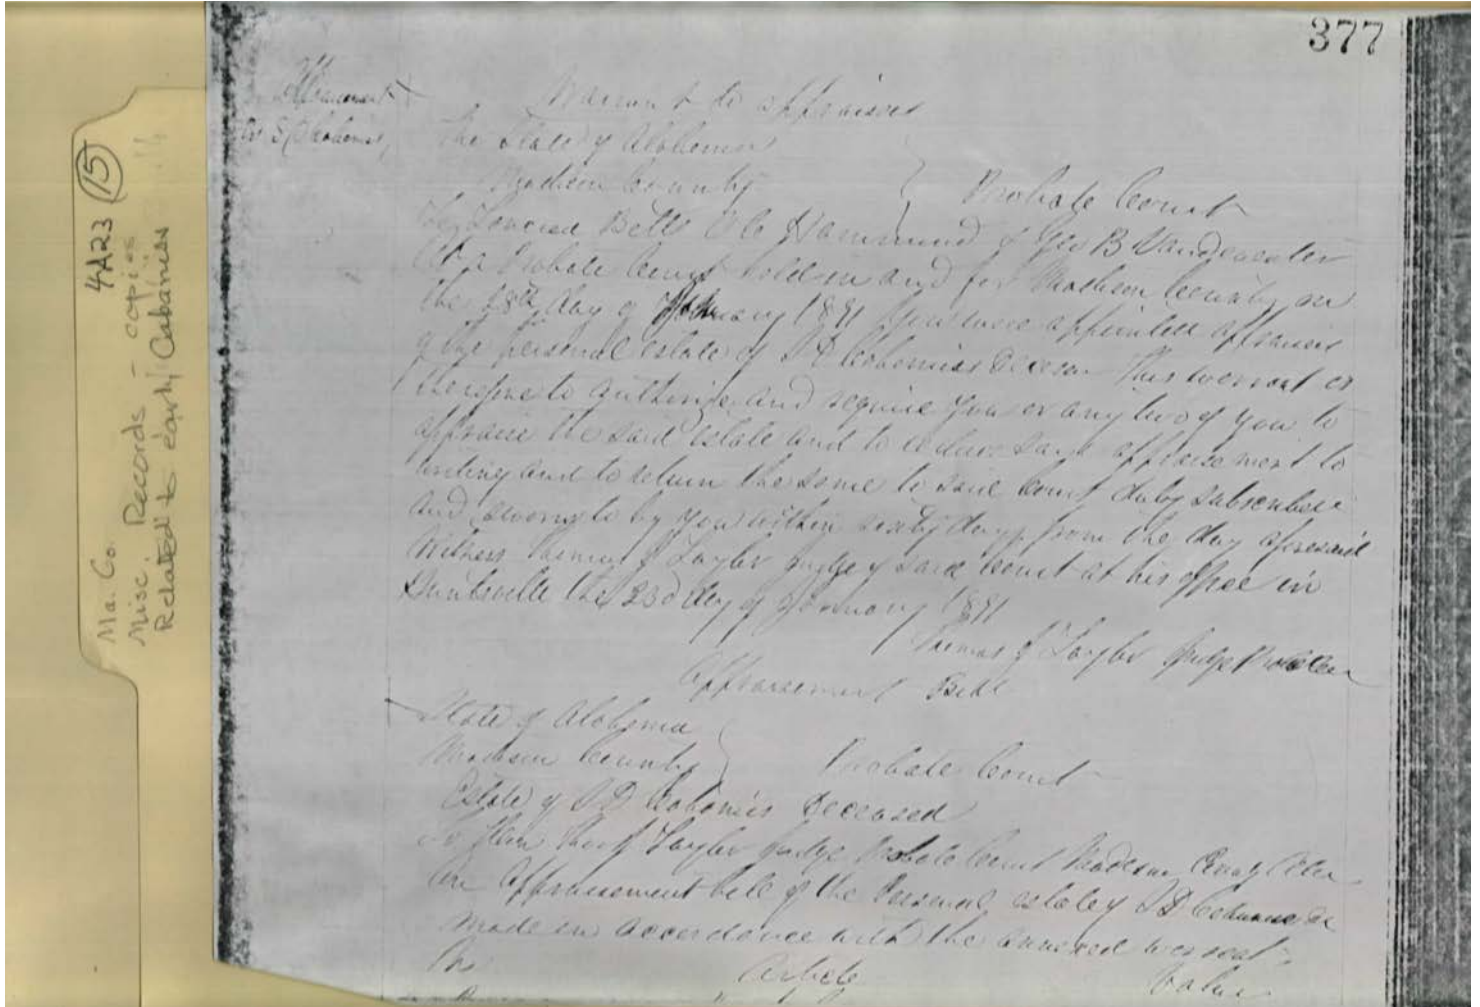 377
Warrant to appraisers
The State of Alabama
Madison County
Probate Court
Betts Hammond & Geo B Vandeventer
At a Probate Court held in and for Madison County on
the 18th day of 1891 you were appointed appraisers
of the personal estate of S D Cabaniss This warrant is
therefore to authorize and require you or any two of you to
appraise the said estate and to reduce said appraisement to
writing and to return the same to said Court duly subscribed
and sworn to by you within sixty days from the day aforesaid
Witness Thomas J Taylor Judge of said Court at his office in
Huntsville the 23d day of January 1891
Thomas J Taylor Judge Probate
Appraisement Bill
State of Alabama
Madison County
Probate Court
Estate of S D Cabaniss Deceased
To Hon Thos J Taylor Judge Probate Court Madison County Ala
An Appraisement bill of the Personal estate of S D
made in accordance with the annexed warrant
No Article Value
4A23 15
Ma. Co.
Misc. Records - copies
Related to early Cabaniss